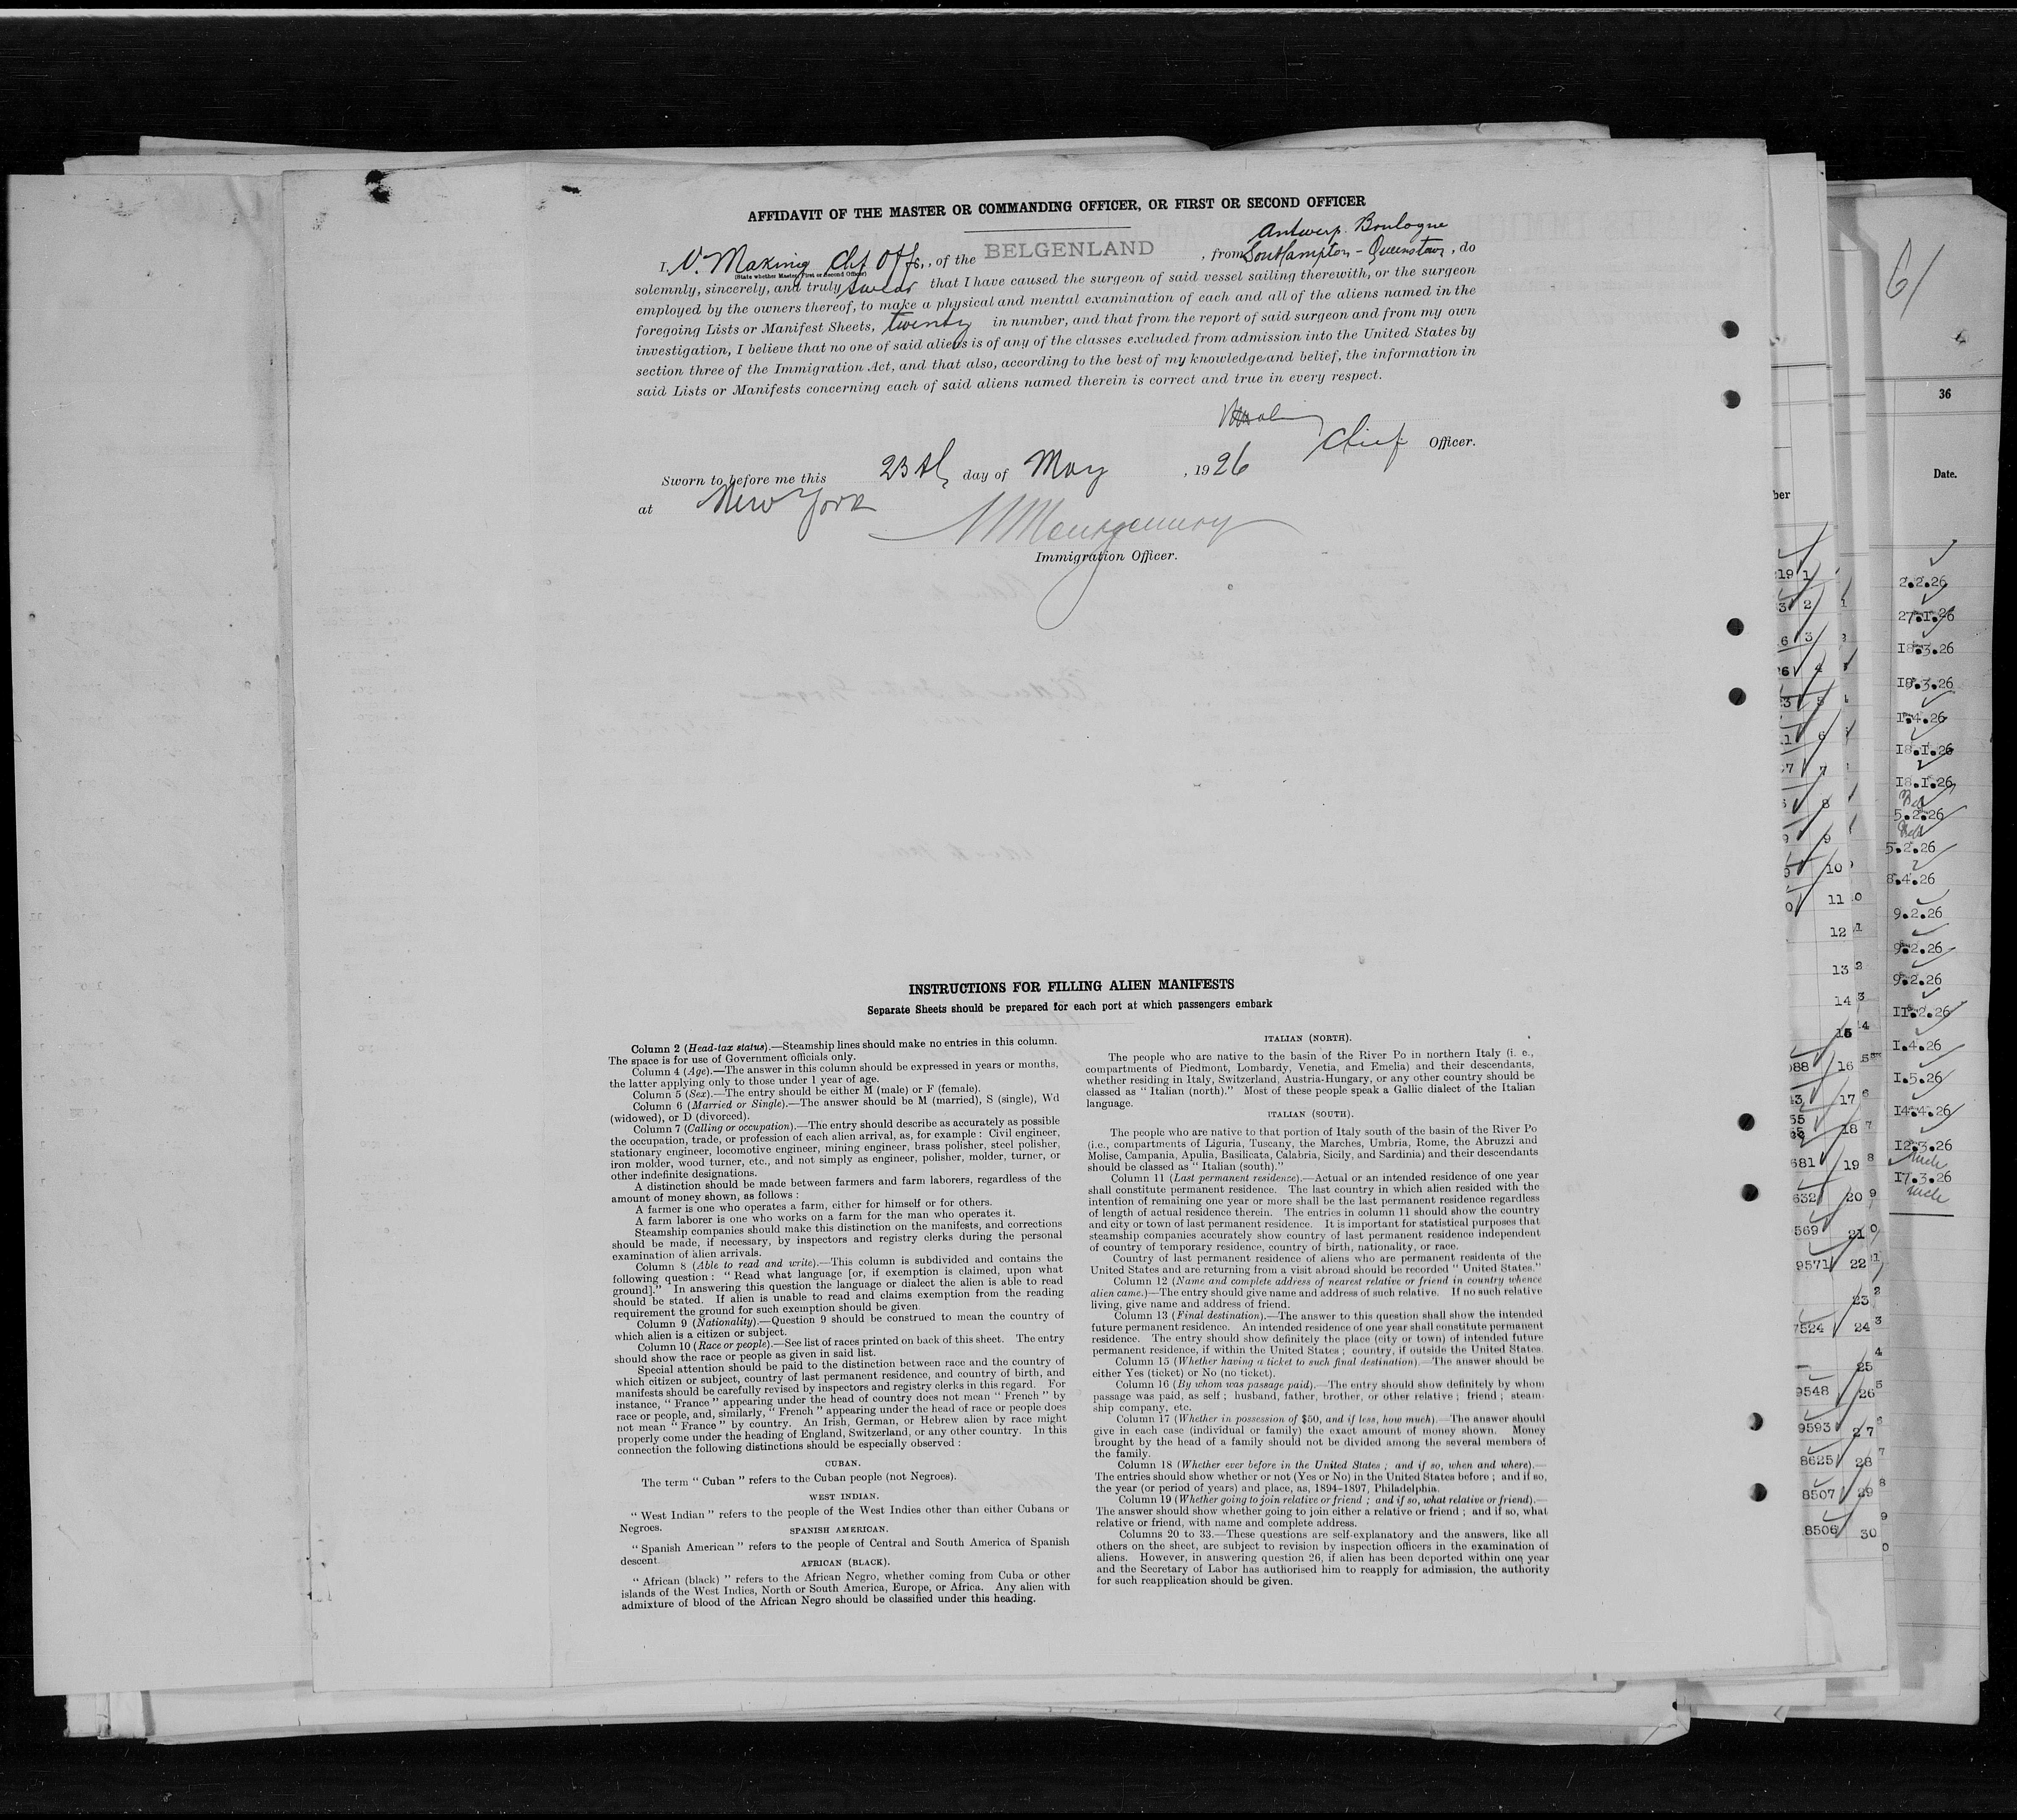 AFFIDAVIT OF THE MASTER OR COMMANDING OFFICER, OR FIRST OR SECOND OFFICER
Antwerp. Boulogne
I, V. Making Chf Offr., of the BELGENLAND, from Southampton - Queenstown, do
(State whether Master, First or Second Officer)
solemnly, sincerely, and truly swear that I have caused the surgeon of said vessel sailing therewith, or the surgeon
employed by the owners thereof, to make a physical and mental examination of each and all of the aliens named in the
foregoing Lists or Manifest Sheets, twenty in number, and that from the report of said surgeon and from my own
investigation, I believe that no one of said aliens is of any of the classes excluded from admission into the United States by
section three of the Immigration Act, and that also, according to the best of my knowledge and belief, the information in
said Lists or Manifests concerning each of said aliens named therein is correct and true in every respect.
Chief Officer.
Sworn to before me this 23th day of May, 1926
at New York
Montgomery
Immigration Officer.
INSTRUCTIONS FOR FILLING ALIEN MANIFESTS
Separate Sheets should be prepared for each port at which passengers embark
Column 2 (Head-tax status).—Steamship lines should make no entries in this column.
The space is for use of Government officials only.
Column 4 (Age).—The answer in this column should be expressed in years or months,
the latter applying only to those under 1 year of age.
Column 5 (Sex).—The entry should be either M (male) or F (female).
Column 6 (Married or Single).—The answer should be M (married), S (single), Wd
(widowed), or D (divorced).
Column 7 (Calling or occupation).—The entry should describe as accurately as possible
the occupation, trade, or profession of each alien arrival, as, for example : Civil engineer,
stationary engineer, locomotive engineer, mining engineer, brass polisher, steel polisher,
iron molder, wood turner, etc., and not simply as engineer, polisher, molder, turner, or
other indefinite designations.
A distinction should be made between farmers and farm laborers, regardless of the
amount of money shown, as follows :
A farmer is one who operates a farm, either for himself or for others.
A farm laborer is one who works on a farm for the man who operates it.
Steamship companies should make this distinction on the manifests, and corrections
should be made, if necessary, by inspectors and registry clerks during the personal
examination of alien arrivals.
Column 8 (Able to read and write).—This column is subdivided and contains the
following question : " Read what language [or, if exemption is claimed, upon what
ground]." In answering this question the language or dialect the alien is able to read
should be stated. If alien is unable to read and claims exemption from the reading
requirement the ground for such exemption should be given.
Column 9 (Nationality).—Question 9 should be construed to mean the country of
which alien is a citizen or subject.
Column 10 (Race or people).—See list of races printed on back of this sheet. The entry
should show the race or people as given in said list.
Special attention should be paid to the distinction between race and the country of
which citizen or subject, country of last permanent residence, and country of birth, and
manifests should be carefully revised by inspectors and registry clerks in this regard. For
instance, " France " appearing under the head of country does not mean " French " by
race or people, and, similarly, " French " appearing under the head of race or people does
not mean " France " by country. An Irish, German, or Hebrew alien by race might
properly come under the heading of England, Switzerland, or any other country. In this
connection the following distinctions should be especially observed :
CUBAN.
The term " Cuban " refers to the Cuban people (not Negroes).
WEST INDIAN.
" West Indian " refers to the people of the West Indies other than either Cubans or
Negroes.
SPANISH AMERICAN.
" Spanish American " refers to the people of Central and South America of Spanish
descent
AFRICAN (BLACK).
" African (black) " refers to the African Negro, whether coming from Cuba or other
islands of the West Indies, North or South America, Europe, or Africa. Any alien with
admixture of blood of the African Negro should be classified under this heading.
ITALIAN (NORTH).
The people who are native to the basin of the River Po in northern Italy (i. e.,
compartments of Piedmont, Lombardy, Venetia, and Emelia) and their descendants,
whether residing in Italy, Switzerland, Austria-Hungary, or any other country should be
classed as " Italian (north)." Most of these people speak a Gallic dialect of the Italian
language.
ITALIAN (SOUTH).
The people who are native to that portion of Italy south of the basin of the River Po
(i.e., compartments of Liguria, Tuscany, the Marches, Umbria, Rome, the Abruzzi and
Molise, Campania, Apulia, Basilicata, Calabria, Sicily, and Sardinia) and their descendants
should be classed as " Italian (south)."
Column 11 (Last permanent residence).—Actual or an intended residence of one year
shall constitute permanent residence. The last country in which alien resided with the
intention of remaining one year or more shall be the last permanent residence regardless
of length of actual residence therein. The entries in column 11 should show the country
and city or town of last permanent residence. It is important for statistical purposes that
steamship companies accurately show country of last permanent residence independent
of country of temporary residence, country of birth, nationality, or race.
Country of last permanent residence of aliens who are permanent residents of the
United States and are returning from a visit abroad should be recorded " United States."
Column 12 (Name and complete address of nearest relative or friend in country whence
alien came.)—The entry should give name and address of such relative. If no such relative
living, give name and address of friend.
Column 13 (Final destination).—The answer to this question shall show the intended
future permanent residence. An intended residence of one year shall constitute permanent
residence. The entry should show definitely the place (city or town) of intended future
permanent residence, if within the United States ; country, if outside the United States.
Column 15 (Whether having a ticket to such final destination).—The answer should be
either Yes (ticket) or No (no ticket).
Column 16 (By whom was passage paid).—The entry should show definitely by whom
passage was paid, as self ; husband, father, brother, or other relative ; friend ; steam
ship company, etc.
Column 17 (Whether in possession of $50, and if less, how much).—The answer should
give in each case (individual or family) the exact amount of money shown. Money
brought by the head of a family should not be divided among the several members of
the family.
Column 18 (Whether ever before in the United States ; and if so, when and where).—
The entries should show whether or not (Yes or No) in the United States before ; and if so,
the year (or period of years) and place, as, 1894–1897, Philadelphia.
Column 19 (Whether going to join relative or friend ; and if so, what relative or friend).—
The answer should show whether going to join either a relative or friend ; and if so, what
relative or friend, with name and complete address.
Columns 20 to 33.—These questions are self-explanatory and the answers, like all
others on the sheet, are subject to revision by inspection officers in the examination of
aliens. However, in answering question 26, if alien has been deported within one year
and the Secretary of Labor has authorised him to reapply for admission, the authority
for such reapplication should be given.
61
36
Date.
2.2.26
27.1.26
18.3.26
18.3.26
1.4.26
18.1.26
18.1.26
5.2.26
5.2.26
8.4.26
9.2.26
9.2.26
9.2.26
11.2.26
1.4.26
1.5.26
14.4.26
12.3.26
17.3.26
ber
19 1
3 2
6 3
26 4
23 5
1 6
7 7
8
9 9
10
0 11
12
13
14
15
088 16
43 17
18
681 19
632 20
569 21
9571 22
23
7524 24
25
9548 26
9593 27
8625 28
8507 29
8506 30